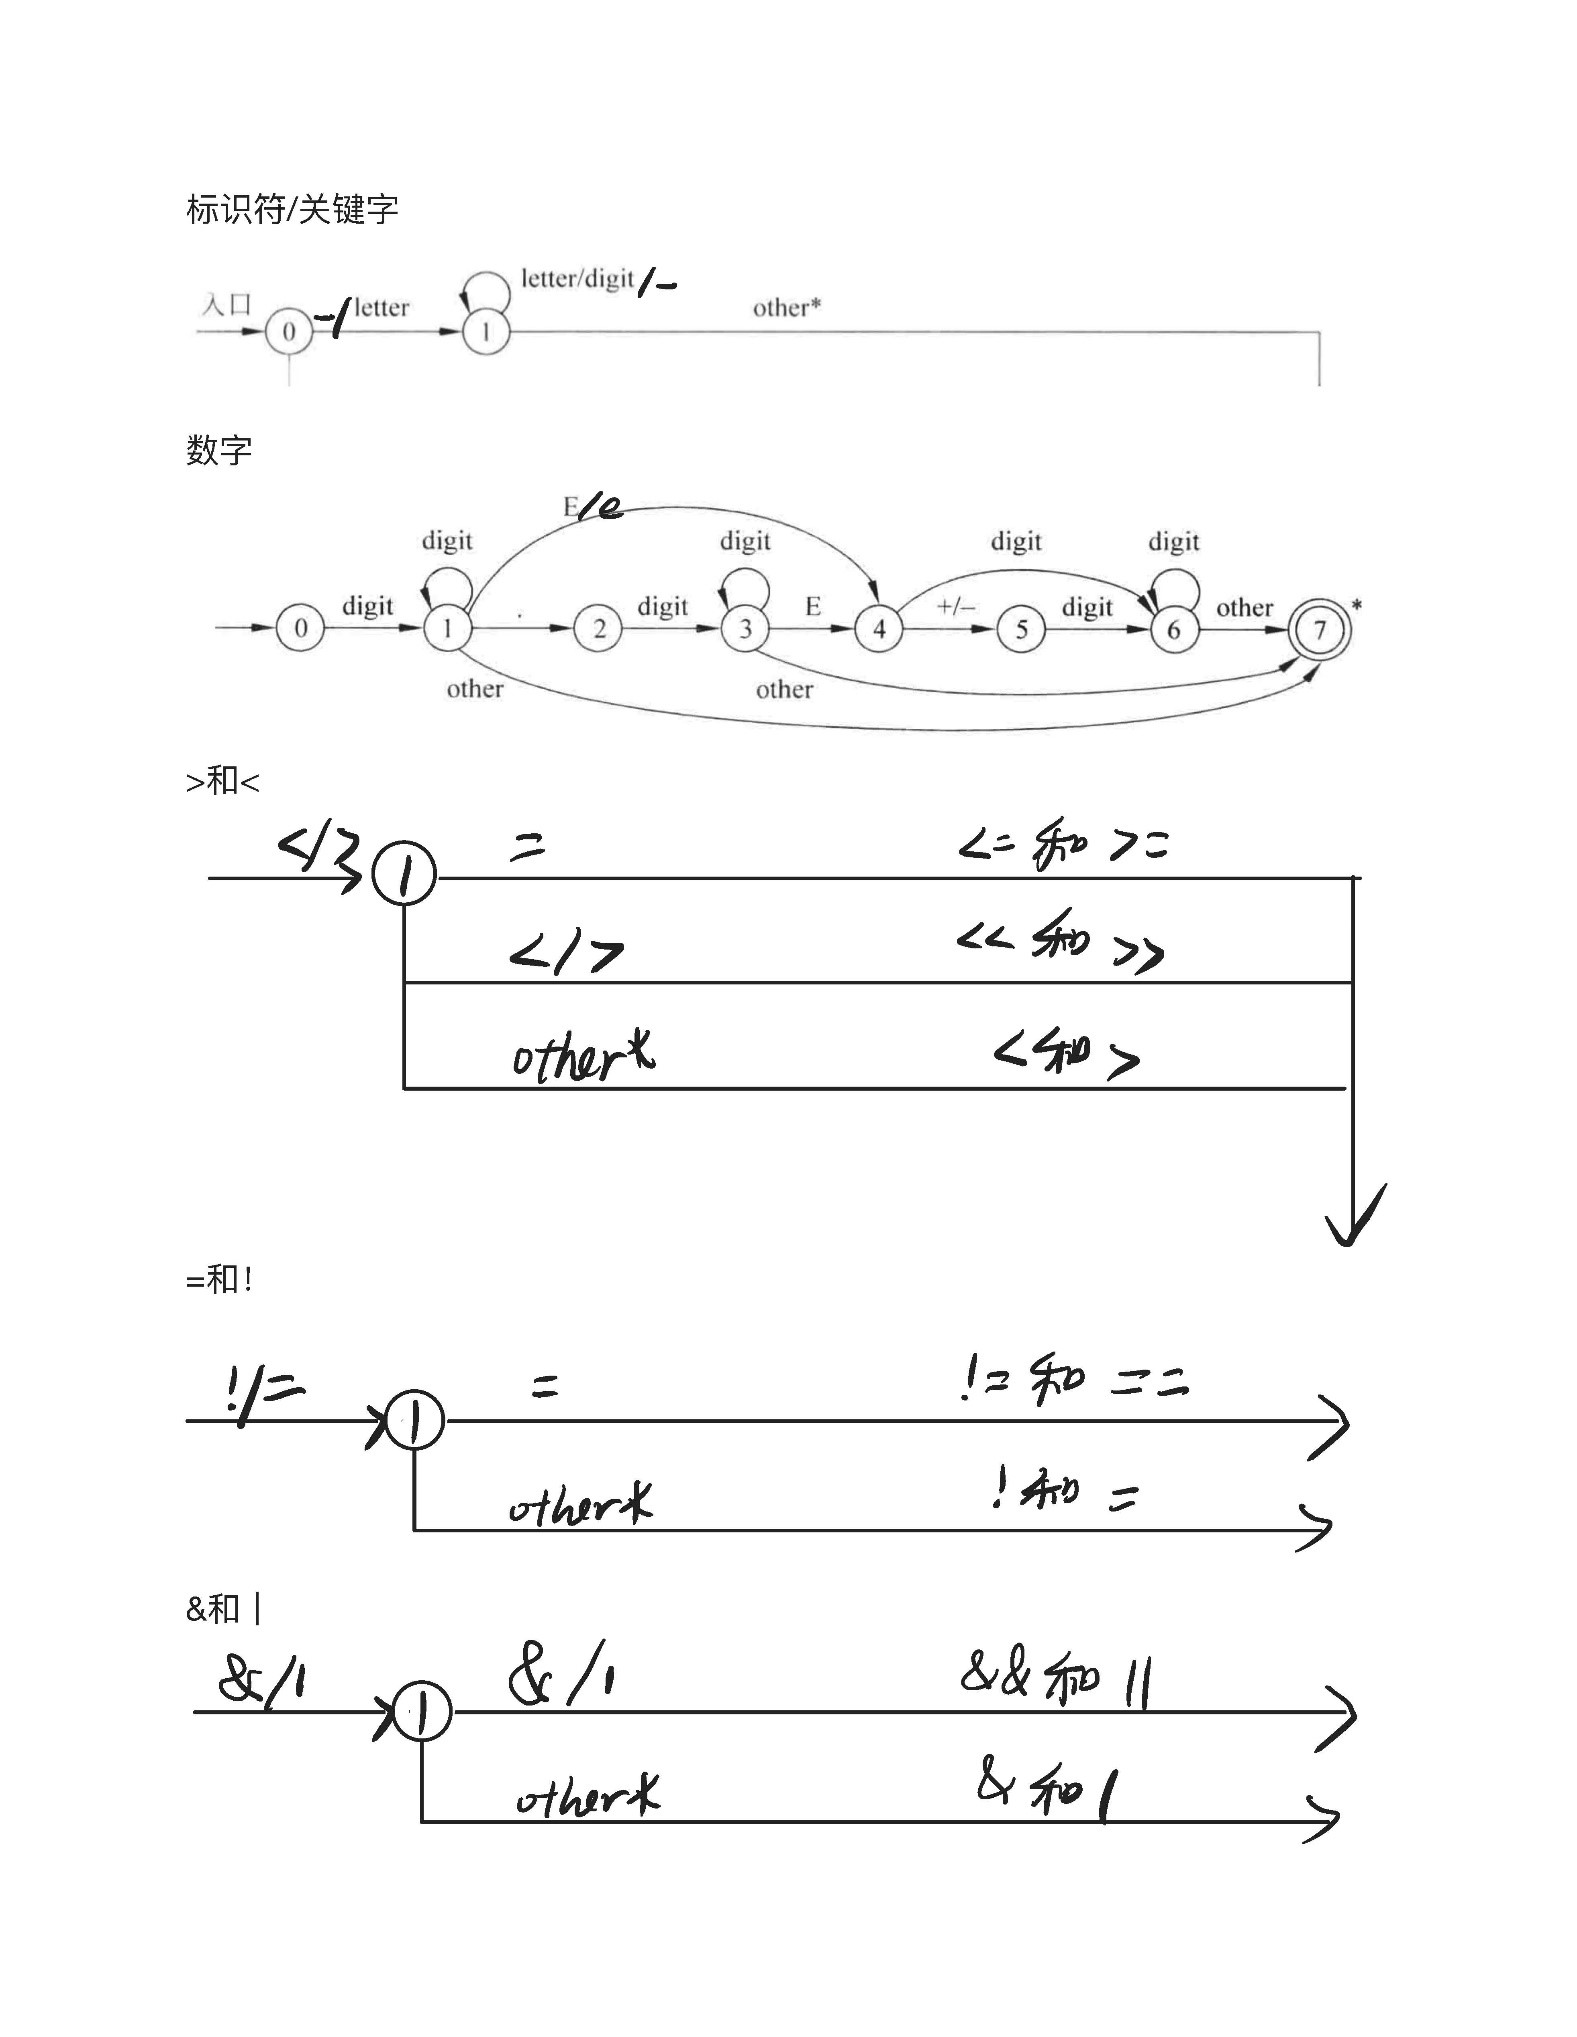 标识符/关键字
letter/digit/-
入口 0 -/letter 1 other*
数字
E/e
digit digit digit digit
0 digit 1 . 2 digit 3 E 4 +/– 5 digit 6 other 7 *
other other
>和<
</> 1 = <=和>=
</> <<和>>
other* <和>
=和!
!/= 1 = !=和==
other* !和=
&和|
&/| 1 &/| &&和||
other* &和|